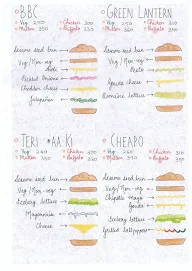 BBC
Veg 240
Chicken 300
Mutton 350
Buffalo
Sesame seed bun
Veg/Non-veg
Pickled Onions
Cheddar cheese
Jalapeños
GREEN LANTERN
Veg
Chicken
Mutton
Buffalo
Sesame seed bun
Veg/Non-veg
Pesto
cheese
Romaine lettuce
TERI *AA KI
Veg 240
Chicken 310
Mutton 360
Buffalo
Sesame seed bun
Veg/Non-veg
Iceberg lettuce
Mayonnaise
Cheese
CHEAPO
Veg
Chicken
Mutton
Buffalo
Sesame seed bun
Veg/Non-veg
Chipotle Mayo
Iceberg lettuce
Grilled bell peppers